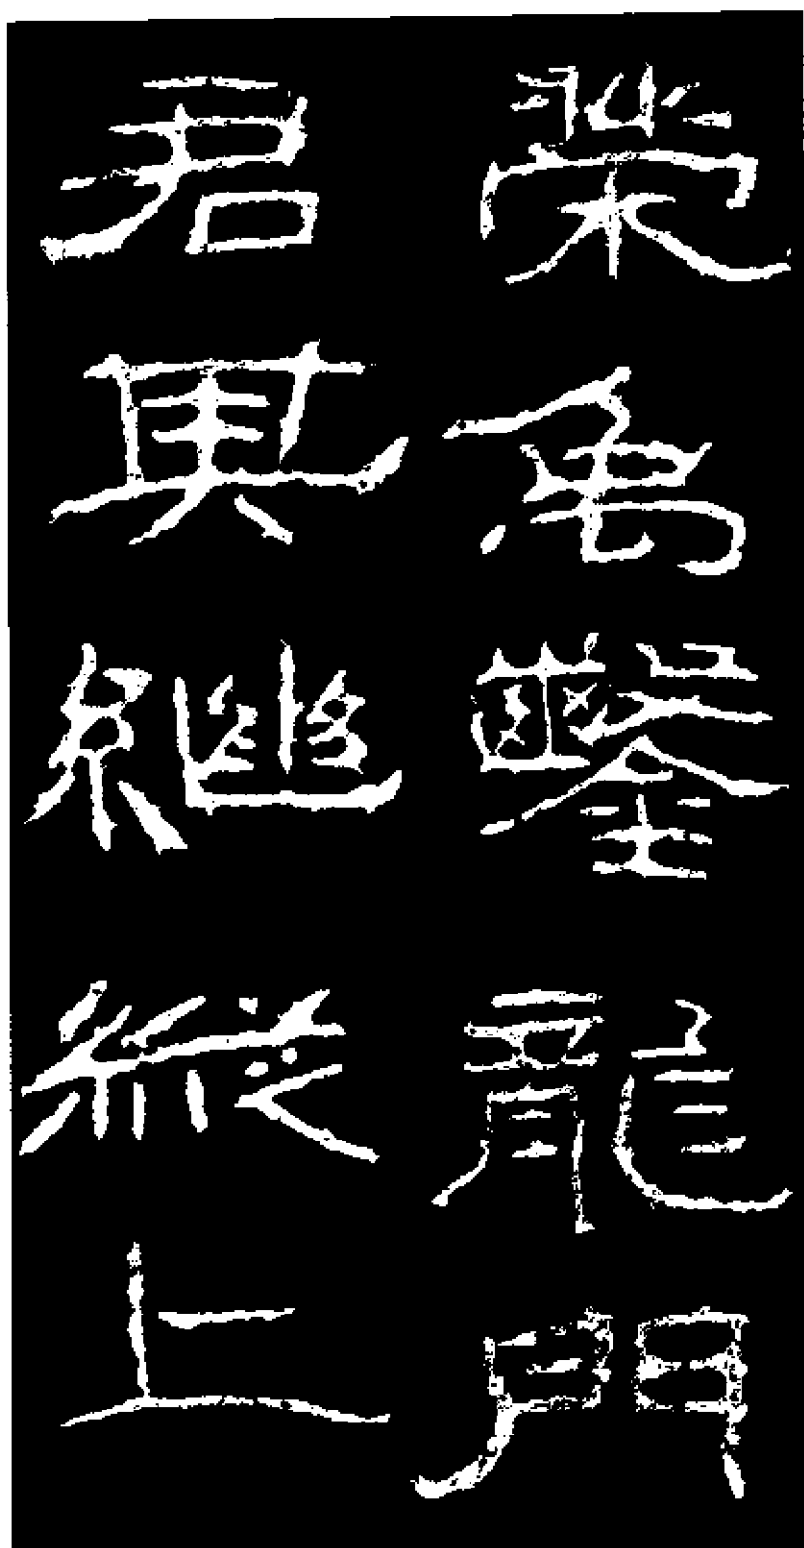 榮禹鑿龍門
君其繼縱上